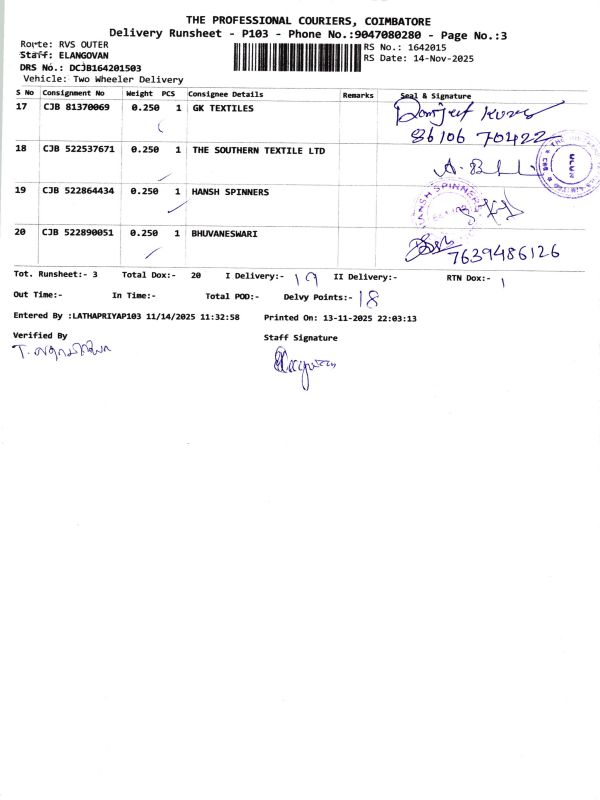 THE PROFESSIONAL COURIERS, COIMBATORE
Delivery Runsheet - P103 - Phone No.:9047080280 - Page No.:3
Route: RVS OUTER
RS No.: 1642015
Staff: ELANGOVAN
RS Date: 14-Nov-2025
DRS No.: DCJB164201503
Vehicle: Two Wheeler Delivery
S No Consignment No Weight PCS Consignee Details Remarks Seal & Signature
17 CJB 81370069 0.250 1 GK TEXTILES
86106 70422
18 CJB 522537671 0.250 1 THE SOUTHERN TEXTILE LTD
19 CJB 522864434 0.250 1 HANSH SPINNERS
HANSH SPINNERS
20 CJB 522890051 0.250 1 BHUVANESWARI
7639486126
Tot. Runsheet:- 3 Total Dox:- 20 I Delivery:- 19 II Delivery:- RTN Dox:- 1
Out Time:- In Time:- Total POD:- Delvy Points:- 18
Entered By :LATHAPRIYAP103 11/14/2025 11:32:58 Printed On: 13-11-2025 22:03:13
Verified By Staff Signature